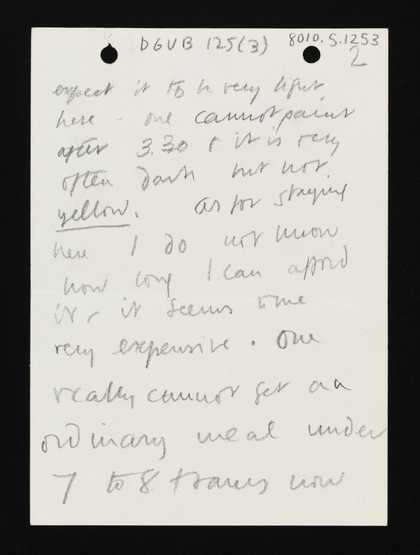 DGVB 125(3) 8010.S.1253
2
expect it to be very light
here - one cannot paint
after 3.30 & it is very
often dark but not
yellow. As for staying
here I do not know
how long I can afford
it & it seems to me
very expensive. One
really cannot get an
ordinary meal under
7 to 8 francs now